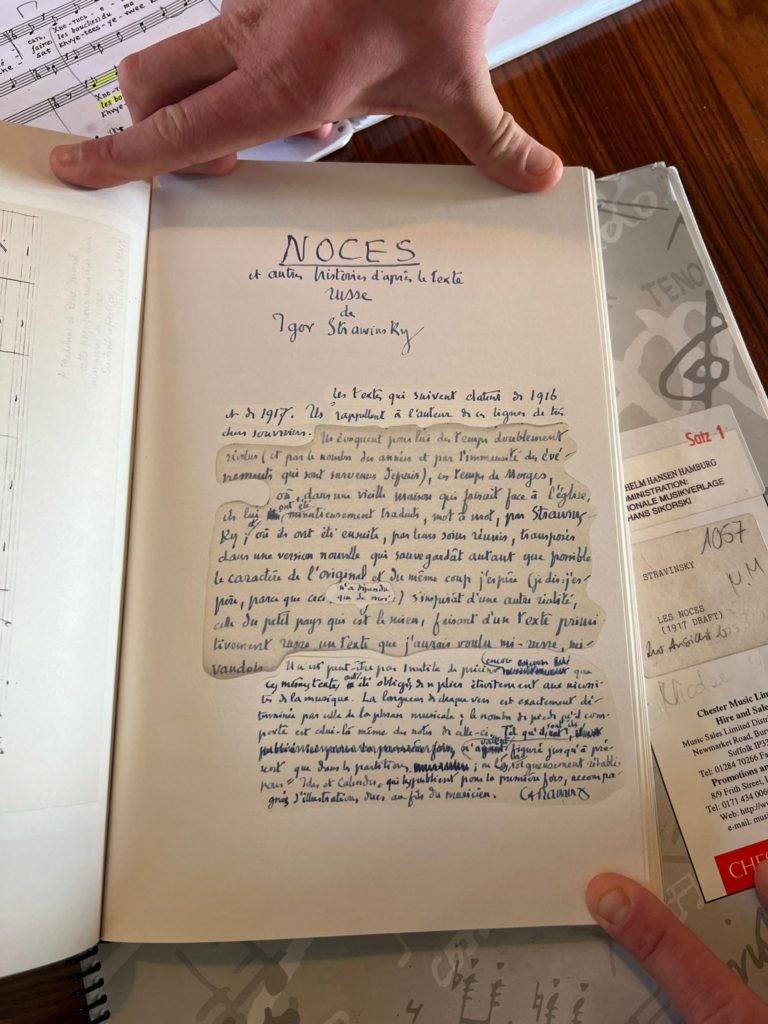 NOCES
et autres histoires d'après le texte
russe
de
Igor Strawinsky
Les textes qui suivent datent de 1916
et de 1917. Ils rappellent à l'auteur de ces lignes de très
chers souvenirs. Ils évoquent pour lui des temps doublement
révolus (et par le nombre des années et par l'immensité des évé-
nements qui sont survenus depuis), ces temps de Morges,
où, dans une vieille maison qui faisait face à l'église,
ils lui ont été minutieusement traduits, mot à mot, par Strawins-
ky; et où ils ont été ensuite, par leurs soins réunis, transposés
dans une version nouvelle qui sauvegardât autant que possible
le caractère de l'original et du même coup j'espère (je dis: j'es-
père, parce que ceci n'a dépendu que de moi) s'inspirât d'une autre réalité,
celle du petit pays qui est le mien, faisant d'un texte primi
tivement russe un texte que j'aurais voulu mi-russe, mi-
vaudois.
Il n'est peut-être pas inutile de préciser encore que
ces mêmes textes ont été obligés de se plier étroitement aux nécessi-
tés de la musique. La longueur de chaque vers est exactement dé-
terminée par celle de la phrase musicale; le nombre de pieds qu'il com-
porte est celui-là même des notes de celle-ci. Tel qu'ils sont,
figuré jusqu'à pré-
sent que dans les partitions
pour la première fois, accompa-
gnés d'illustrations dues au fils du musicien. C. F. Ramuz
TENO
Satz 1
HELM HANSEN HAMBURG
DMINISTRATION:
IONALE MUSIKVERLAGE
HANS SIKORSKI
1057
STRAVINSKY
LES NOCES
(1917 DRAFT)
Chester Music Lim
Hire and Sale
Music Sales Limited Dist
Newmarket Road, Bury
Suffolk IP3
Tel: 01284 70266
Fax: 01284
Promotions a
8/9 Frith Street, L
Tel: 0171 434 006
Web: http://w
e-mail: mus
CHES